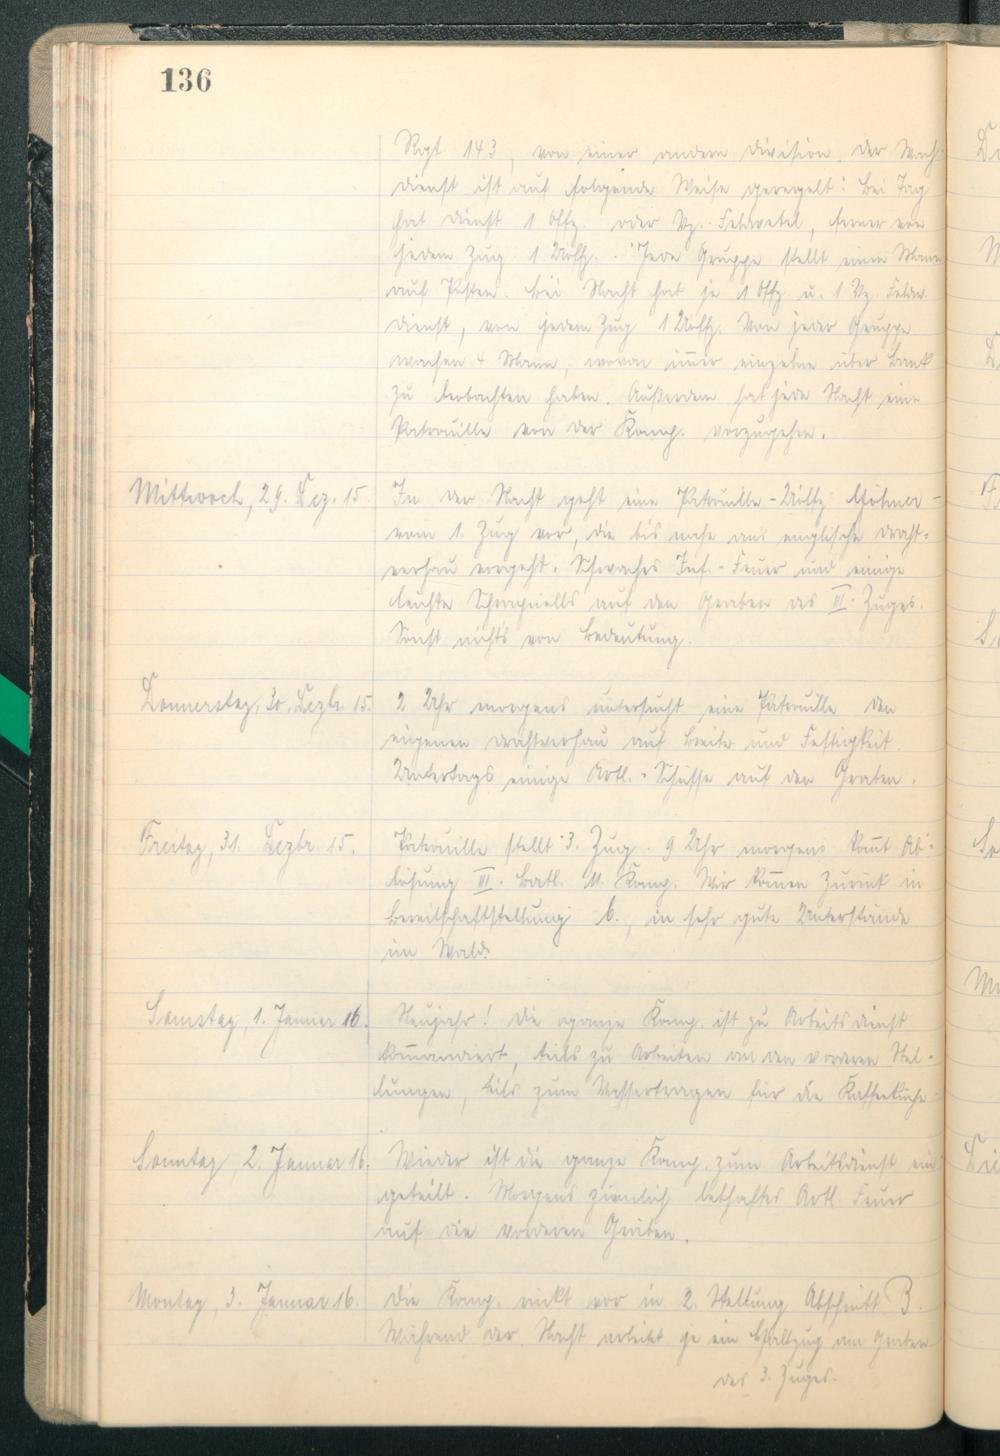 136
Rgt 143, von einer andern Division. Der Wach-
dienst ist auf folgende Weise geregelt: Bei Tag
hat Dienst 1 Offz. oder Vz.-Feldwebel, ferner von
jedem Zug 1 Uoffz. Jede Gruppe stellt einen Mann
auf Posten. Bei Nacht hat je 1 Offz. u. 1 Vz. Feldw.
Dienst, von jedem Zug 1 Uoffz. Von jeder Gruppe
wachen 4 Mann, wovon im̄er einzelne über Bank
zu beobachten haben. Außerdem hat jede Nacht eine
Patrouille von der Komp. vorzugehen.
Mittwoch, 29. Dez. 15.
In der Nacht geht eine Patrouille - Uoffz.
vom 1. Zug vor, die bis nahe ans englische Draht-
verhau vorgeht. Schwaches Inf.-Feuer und einige
leichte Schrapnells auf den Graben des III. Zuges.
Sonst nichts von Bedeutung.
Donnerstag, 30. Dezbr. 15.
2 Uhr morgens untersucht eine Patrouille den
eigenen Drahtverhau auf Breite und Festigkeit.
Untertags einige Artl.-Schüsse auf den Graben.
Freitag, 31. Dezbr. 15.
Patrouille stellt 3. Zug. 9 Uhr morgens kom̄t Ab-
lösung III. Batl. 11. Komp. Wir kom̄en zurück in
Bereitschaftstellung b., in sehr gute Unterstände
im Wald.
Samstag, 1. Januar 16.
Neujahr! Die ganze Komp. ist zu Arbeitsdienst
kom̄andiert, teils zu Arbeiten an den vorderen Stel-
lungen, teils zum Wassertragen für die Kaffeeküche.
Sonntag, 2. Januar 16.
Wieder ist die ganze Komp. zum Arbeitsdienst ein-
geteilt. Morgens ziemlich lebhaftes Artl. Feuer
auf die vorderen Gräben.
Montag, 3. Januar 16.
Die Komp. rückt vor in 2. Stellung Abschnitt B.
Während der Nacht arbeitet je ein Halbzug am Graben
des 3. Zuges.